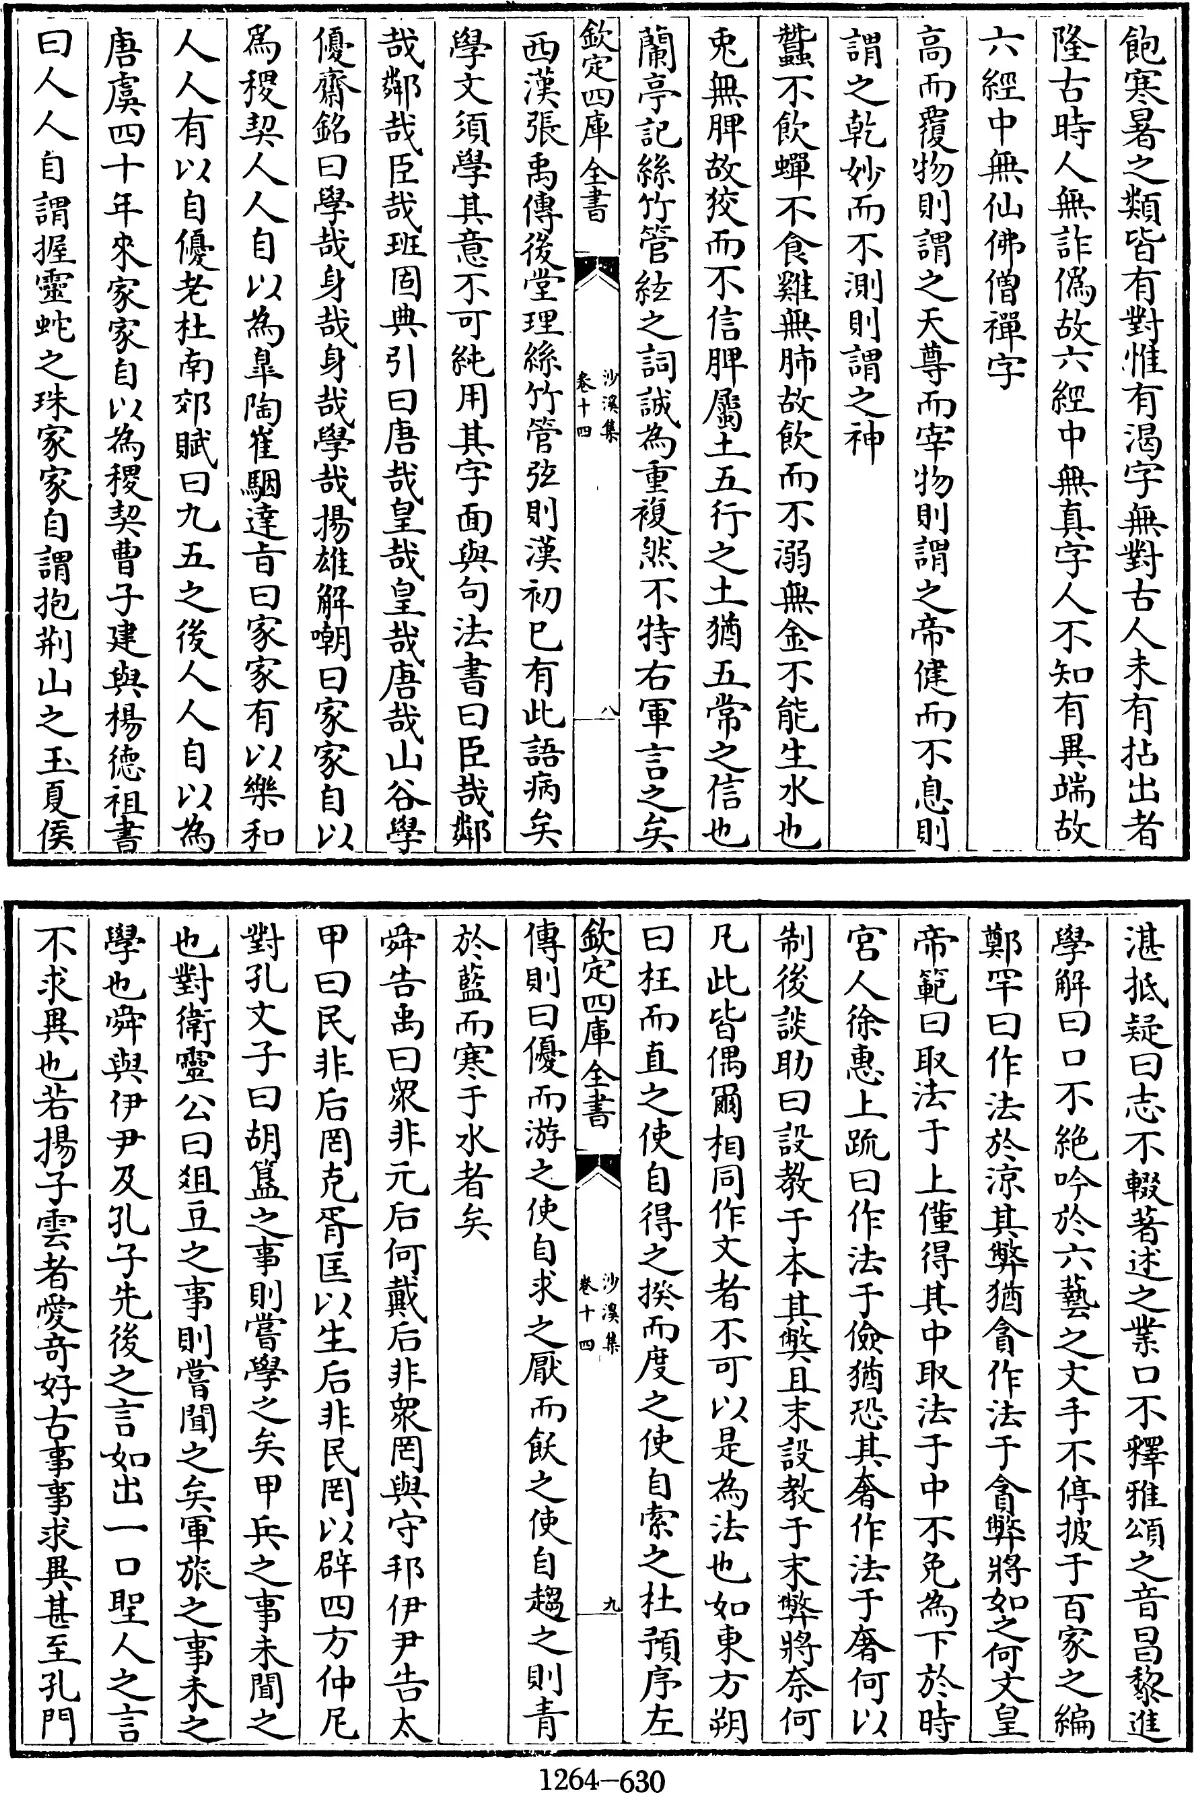 飽寒暑之類皆有對惟有渴字無對古人未有拈出者
隆古時人無詐僞故六經中無真字人不知有異端故
六經中無仙佛僧禪字
高而覆物則謂之天尊而宰物則謂之帝健而不息則
謂之乾妙而不測則謂之神
蠶不飲蟬不食雞無肺故飲而不溺無金不能生水也
兎無脾故狡而不信脾屬土五行之土猶五常之信也
蘭亭記絲竹管絃之詞誠為重複然不特右軍言之矣
欽定四庫全書
沙溪集
卷十四
八
西漢張禹傳後堂理絲竹管弦則漢初已有此語病矣
學文須學其意不可純用其字面與句法書曰臣哉鄰
哉鄰哉臣哉班固典引曰唐哉皇哉皇哉唐哉山谷學
優齋銘曰學哉身哉身哉學哉揚雄解嘲曰家家自以
為稷契人人自以為臯陶崔駰達旨曰家家有以樂和
人人有以自優老杜南郊賦曰九五之後人人自以為
唐虞四十年來家家自以為稷契曹子建與楊德祖書
曰人人自謂握靈蛇之珠家家自謂抱荆山之玉夏侯
湛抵疑曰志不輟著述之業口不釋雅頌之音昌黎進
學解曰口不絶吟於六藝之文手不停披于百家之編
鄭罕曰作法於凉其弊猶貪作法于貪弊將如之何文皇
帝範曰取法于上僅得其中取法于中不免為下於時
宮人徐惠上疏曰作法于儉猶恐其奢作法于奢何以
制後談助曰設教于本其弊且末設教于末弊將奈何
凡此皆偶爾相同作文者不可以是為法也如東方朔
曰枉而直之使自得之揆而度之使自索之杜預序左
欽定四庫全書
沙溪集
卷十四
九
傳則曰優而游之使自求之厭而飫之使自趨之則青
於藍而寒于水者矣
舜告禹曰衆非元后何戴后非衆罔與守邦伊尹告太
甲曰民非后罔克胥匡以生后非民罔以辟四方仲尼
對孔文子曰胡簋之事則嘗學之矣甲兵之事未聞之
也對衛靈公曰俎豆之事則嘗聞之矣軍旅之事未之
學也舜與伊尹及孔子先後之言如出一口聖人之言
不求異也若揚子雲者愛奇好古事事求異甚至孔門
1264-630